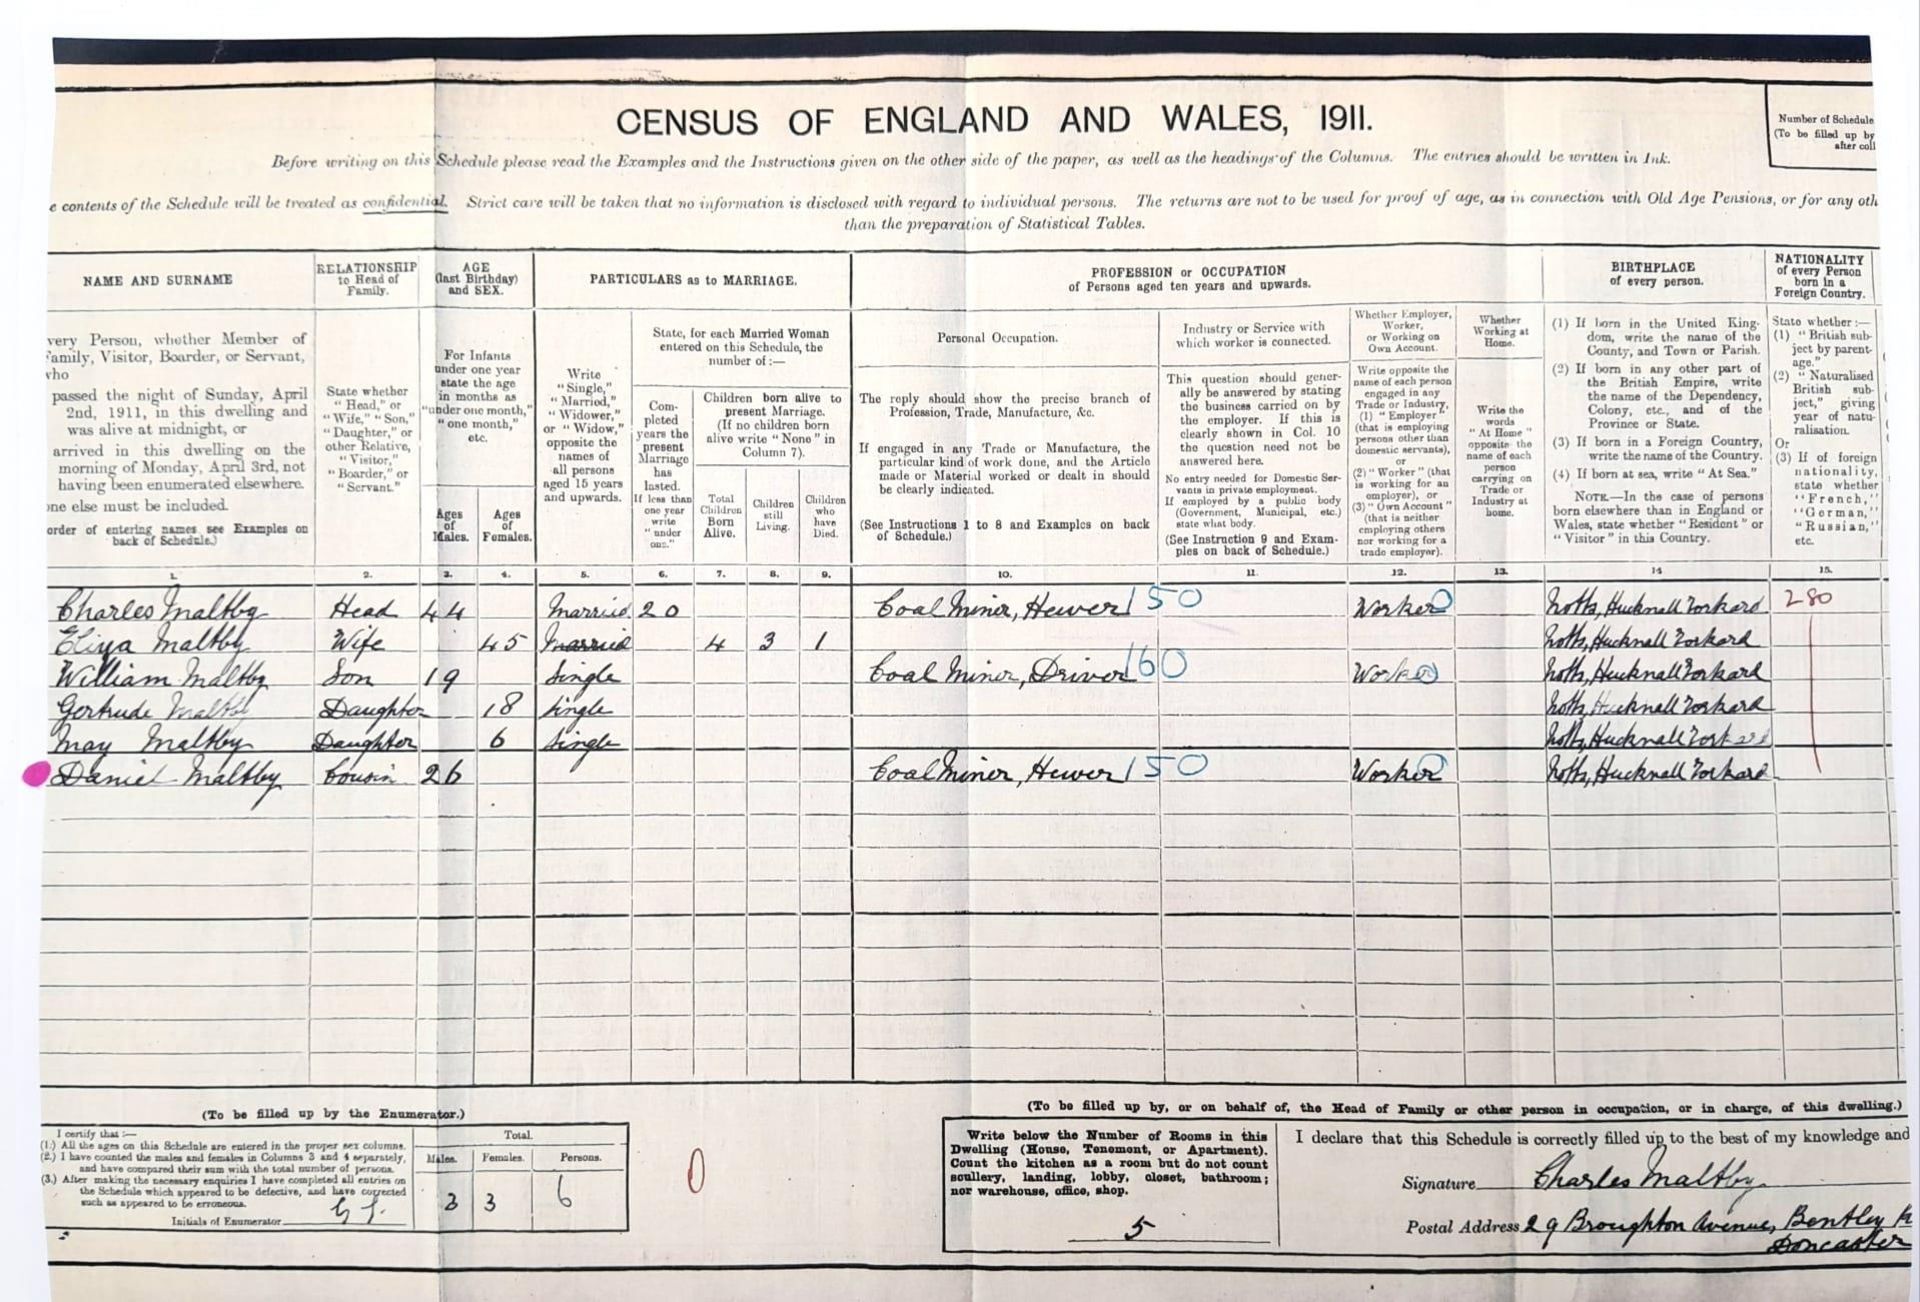 CENSUS OF ENGLAND AND WALES, 1911.
Number of Schedule
(To be filled up by
after coll
Before writing on this Schedule please read the Examples and the Instructions given on the other side of the paper, as well as the headings of the Columns. The entries should be written in Ink.
e contents of the Schedule will be treated as confidential. Strict care will be taken that no information is disclosed with regard to individual persons. The returns are not to be used for proof of age, as in connection with Old Age Pensions, or for any oth
than the preparation of Statistical Tables.
NAME AND SURNAME
very Person, whether Member of
Family, Visitor, Boarder, or Servant,
who
passed the night of Sunday, April
2nd, 1911, in this dwelling and
was alive at midnight, or
arrived in this dwelling on the
morning of Monday, April 3rd, not
having been enumerated elsewhere.
one else must be included.
order of entering names see Examples on
back of Schedule.)
RELATIONSHIP
to Head of
Family.
State whether
"Head," or
"Wife," "Son,"
"Daughter," or
other Relative,
"Visitor,"
"Boarder," or
"Servant."
AGE
(last Birthday)
and SEX.
For Infants
under one year
state the age
in months as
"under one month,"
"one month,"
etc.
Ages
of
Males.
Ages
of
Females.
PARTICULARS as to MARRIAGE.
Write
"Single,"
"Married,"
"Widower,"
or "Widow,"
opposite the
names of
all persons
aged 15 years
and upwards.
State, for each Married Woman
entered on this Schedule, the
number of:—
Com-
pleted
years the
present
Marriage
has
lasted.
If less than
one year
write
"under
one."
Children born alive to
present Marriage.
(If no children born
alive write "None" in
Column 7).
Total
Children
Born
Alive.
Children
still
Living.
Children
who
have
Died.
PROFESSION or OCCUPATION
of Persons aged ten years and upwards.
Personal Occupation.
The reply should show the precise branch of
Profession, Trade, Manufacture, &c.
If engaged in any Trade or Manufacture, the
particular kind of work done, and the Article
made or Material worked or dealt in should
be clearly indicated.
(See Instructions 1 to 8 and Examples on back
of Schedule.)
Industry or Service with
which worker is connected.
This question should gener-
ally be answered by stating
the business carried on by
the employer. If this is
clearly shown in Col. 10
the question need not be
answered here.
No entry needed for Domestic Ser-
vants in private employment.
If employed by a public body
(Government, Municipal, etc.)
state what body.
(See Instruction 9 and Exam-
ples on back of Schedule.)
Whether Employer,
Worker,
or Working on
Own Account.
Write opposite the
name of each person
engaged in any
Trade or Industry,
(1) "Employer"
(that is employing
persons other than
domestic servants),
or
(2) "Worker" (that
is working for an
employer), or
(3) "Own Account"
(that is neither
employing others
nor working for a
trade employer).
Whether
Working at
Home.
Write the
words
"At Home"
opposite the
name of each
person
carrying on
Trade or
Industry at
home.
BIRTHPLACE
of every person.
(1) If born in the United King-
dom, write the name of the
County, and Town or Parish.
(2) If born in any other part of
the British Empire, write
the name of the Dependency,
Colony, etc., and of the
Province or State.
(3) If born in a Foreign Country,
write the name of the Country.
(4) If born at sea, write "At Sea."
NOTE.—In the case of persons
born elsewhere than in England or
Wales, state whether "Resident" or
"Visitor" in this Country.
NATIONALITY
of every Person
born in a
Foreign Country.
State whether :—
(1) "British sub-
ject by parent-
age."
(2) "Naturalised
British sub-
ject," giving
year of natu-
ralisation.
Or
(3) If of foreign
nationality,
state whether
"French,"
"German,"
"Russian,"
etc.
1. 2. 3. 4. 5. 6. 7. 8. 9. 10. 11. 12. 13. 14 15.
Charles Maltby Head 44 Married 20 Coal Miner, Hewer 150 Worker Notts, Hucknall Torkard 280
Eliza Maltby Wife 45 Married 4 3 1 Notts, Hucknall Torkard
William Maltby Son 19 Single Coal Miner, Driver 160 Worker Notts, Hucknall Torkard
Gertrude Maltby Daughter 18 Single Notts, Hucknall Torkard
May Maltby Daughter 6 Single Notts, Hucknall Torkard
Daniel Maltby Cousin 26 Coal Miner, Hewer 150 Worker Notts, Hucknall Torkard
(To be filled up by the Enumerator.)
I certify that :—
(1.) All the ages on this Schedule are entered in the proper sex columns.
(2.) I have counted the males and females in Columns 3 and 4 separately,
and have compared their sum with the total number of persons.
(3.) After making the necessary enquiries I have completed all entries on
the Schedule which appeared to be defective, and have corrected
such as appeared to be erroneous.
Initials of Enumerator
Total.
Males. Females. Persons.
3 3 6
0
(To be filled up by, or on behalf of, the Head of Family or other person in occupation, or in charge, of this dwelling.)
Write below the Number of Rooms in this
Dwelling (House, Tenement, or Apartment).
Count the kitchen as a room but do not count
scullery, landing, lobby, closet, bathroom;
nor warehouse, office, shop.
5
I declare that this Schedule is correctly filled up to the best of my knowledge and
Signature Charles Maltby
Postal Address 29 Broughton Avenue, Bentley
Doncaster